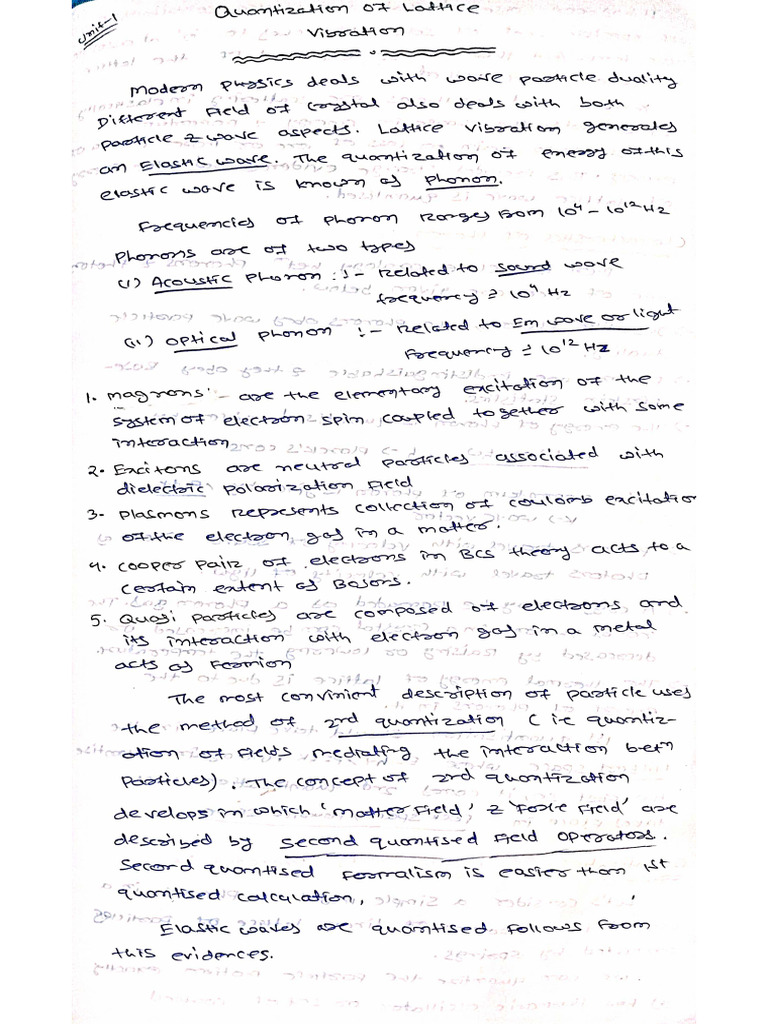 Unit-1
Quantization of Lattice
Vibration
Modern Physics deals with wave particle duality
Different Field of crystal also deals with both
particle & wave aspects. Lattice vibration generates
an Elastic wave. The quantization of energy of this
elastic wave is known as Phonon.
Frequencies of Phonon Ranges from 10⁴ - 10¹² Hz
Phonons are of two types
(i) Acoustic Phonon :- Related to sound wave
frequency ≃ 10⁴ Hz
(ii) optical phonon :- Related to Em wave or light
Frequency ≃ 10¹² Hz
1. magnons - are the elementary excitation of the
system of electron spin coupled together with some
interaction
2. Excitons are neutral particles associated with
dielectric Polarization Field
3- Plasmons Represents collection of coulomb excitation
of the electron gas in a matter.
4. Cooper Pair of electrons in BCS theory acts to a
certain extent as Bosons.
5. Quasi Particles are composed of electrons and
its interaction with electron gas in a metal
acts as Fermion
The most convinient description of particle uses
the method of 2nd quantization (i.e quantiz-
ation of fields mediating the interaction betⁿ
Particles). The concept of 2nd quantization
develops in which 'matter Field' & 'Force Field' are
described by second quantised Field Operators.
Second quantised formalism is easier than 1st
quantised calculation,
Elastic waves are quantised follows from
this evidences.